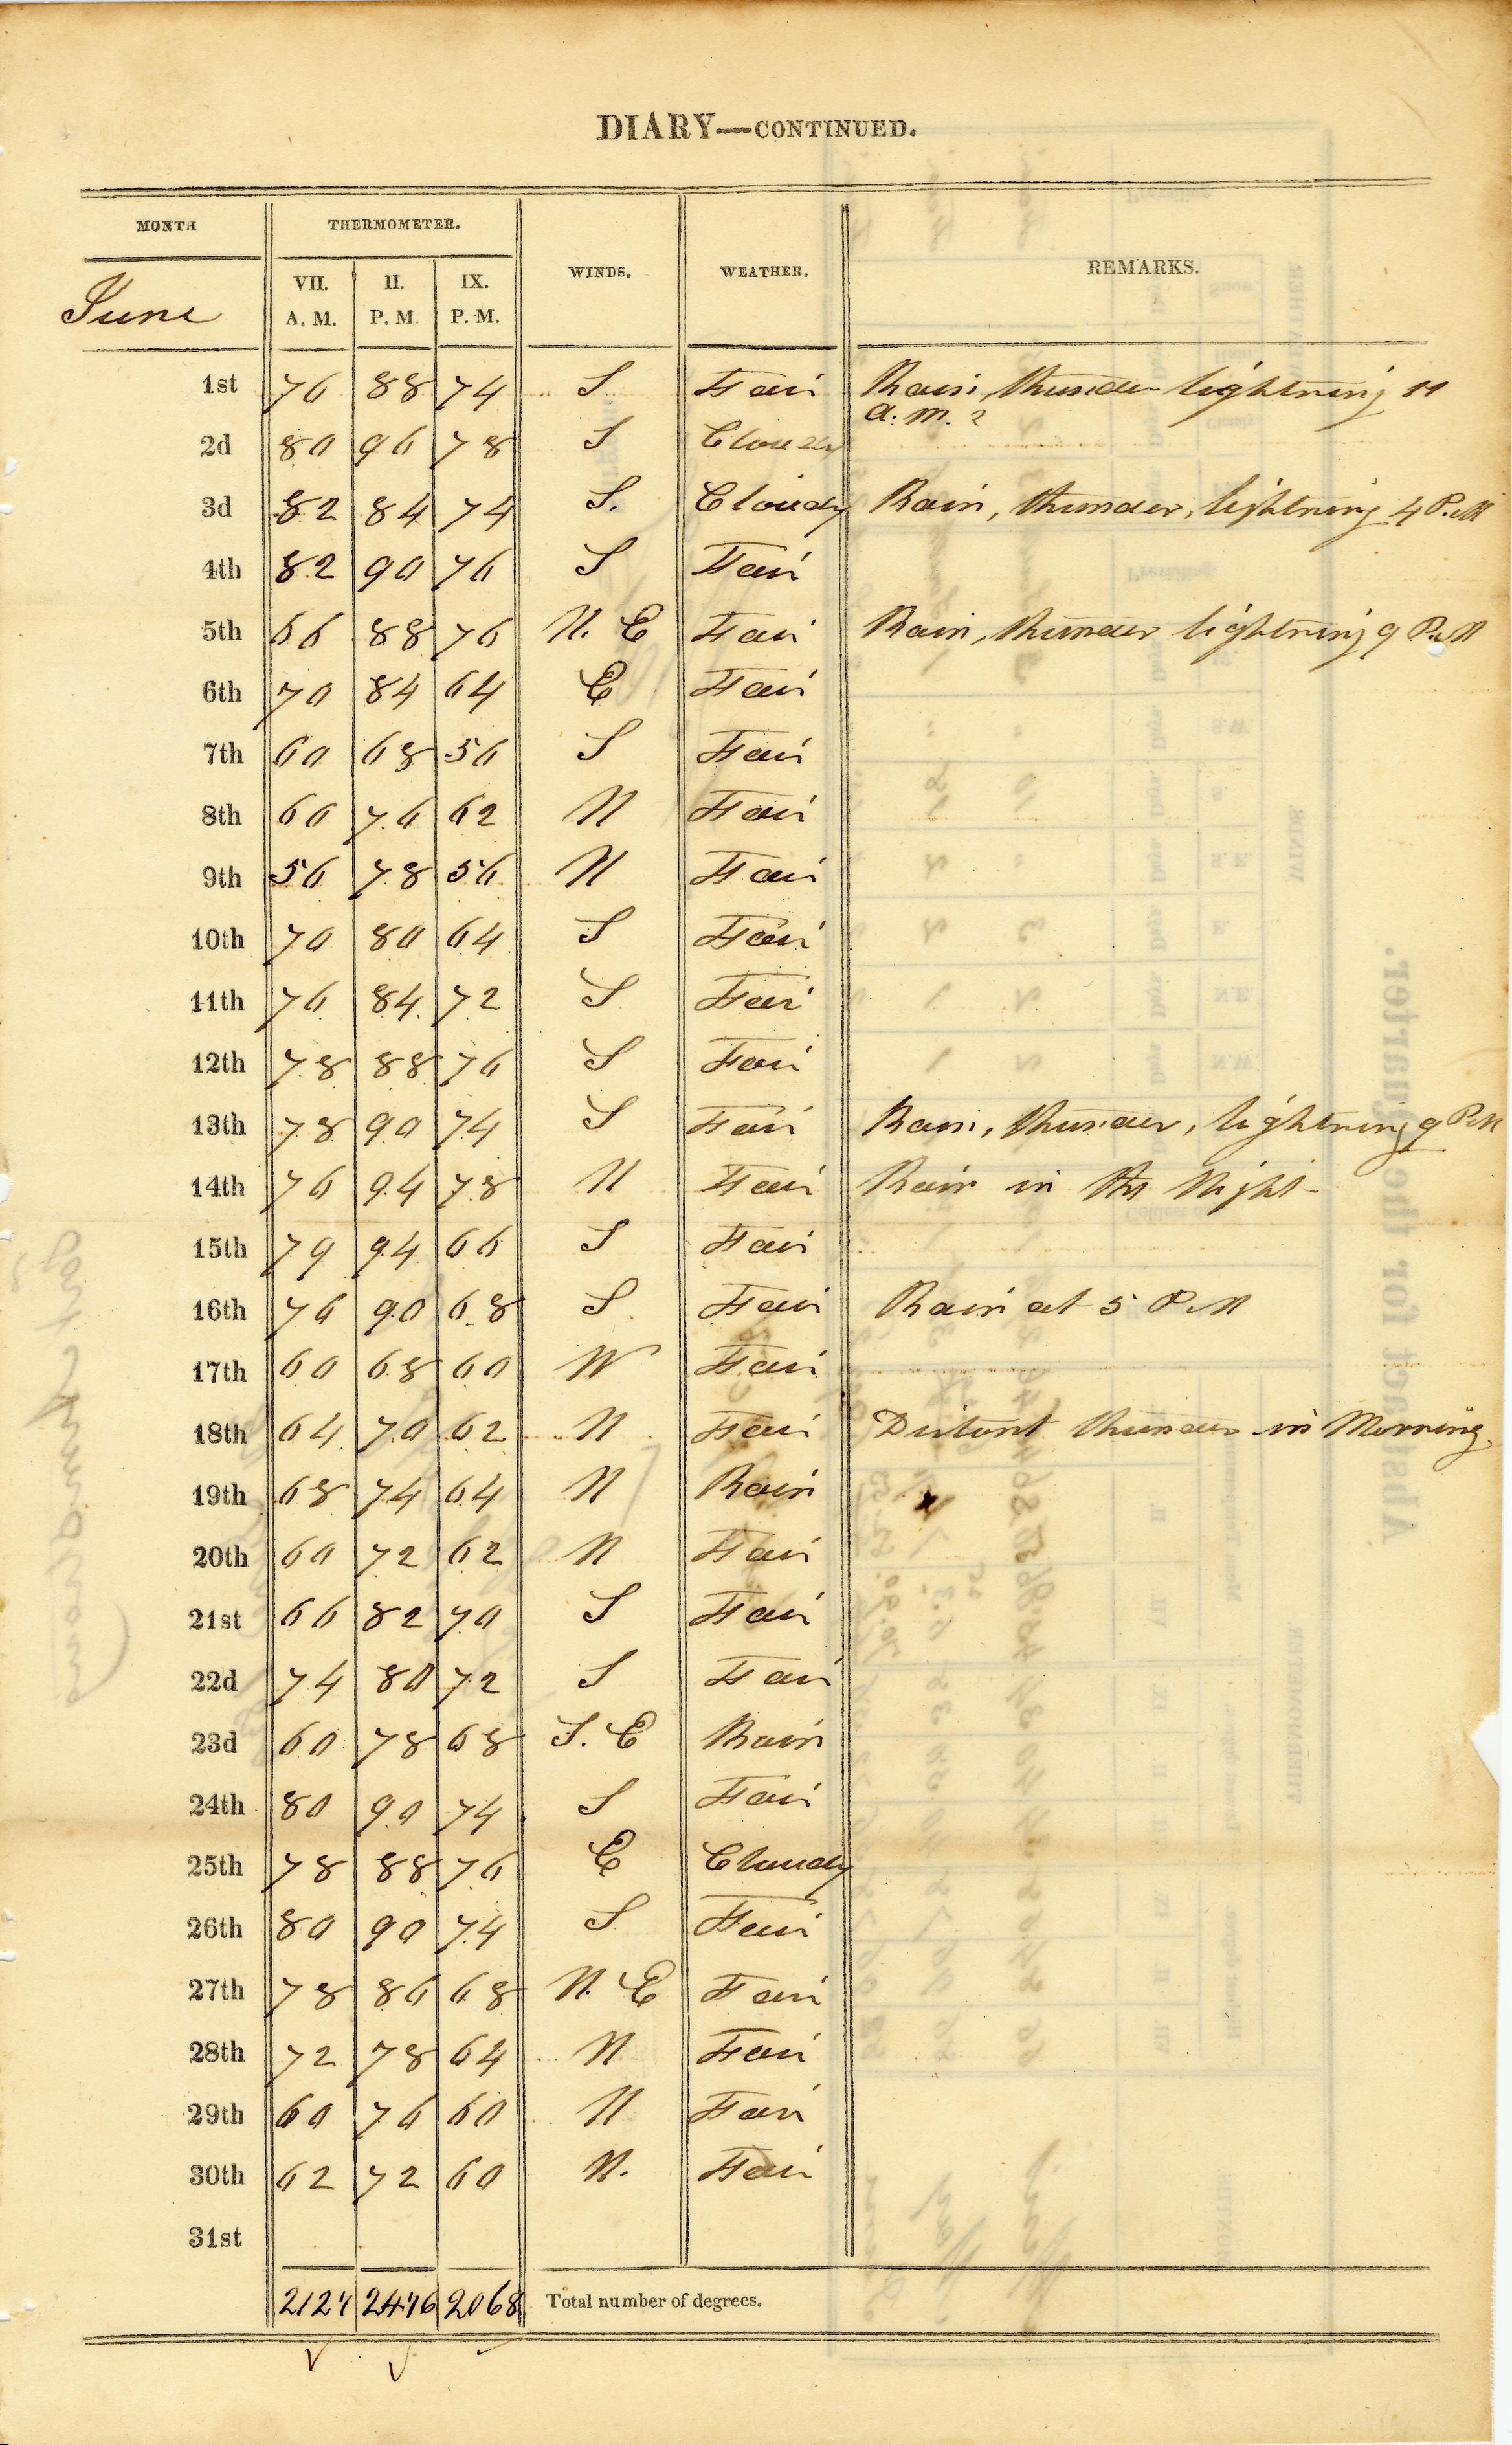 DIARY—CONTINUED.
MONTH THERMOMETER. WINDS. WEATHER. REMARKS.
June VII. A. M. II. P. M. IX. P. M.
1st 76 88 74 S Fair Rain, thunder lightning 11
a. m.
2d 80 96 78 S Cloudy
3d 82 84 74 S. Cloudy Rain, thunder, lightning 4 P.M
4th 82 90 76 S Fair
5th 66 88 76 N. E Fair Rain, thunder lightning 9 P.M
6th 70 84 64 E Fair
7th 60 68 56 S Fair
8th 60 76 62 N Fair
9th 56 78 56 N Fair
10th 70 80 64 S Fair
11th 76 84 72 S Fair
12th 78 88 76 S Fair
13th 78 90 74 S Fair Rain, thunder, lightning 9 P.M
14th 76 94 78 N Fair Rain in the Night
15th 79 94 66 S Fair
16th 76 90 68 S Fair Rain at 5 P.M
17th 60 68 60 W Fair
18th 64 70 62 N Fair Distant thunder in Morning
19th 68 74 64 N Rain
20th 60 72 62 N Fair
21st 66 82 70 S Fair
22d 74 80 72 S Fair
23d 60 78 68 S. E Rain
24th 80 90 74 S Fair
25th 78 88 76 E Cloudy
26th 80 90 74 S Fair
27th 78 86 68 N. E Fair
28th 72 78 64 N Fair
29th 60 76 60 N Fair
30th 62 72 60 N. Fair
31st
2127 2476 2068 Total number of degrees.